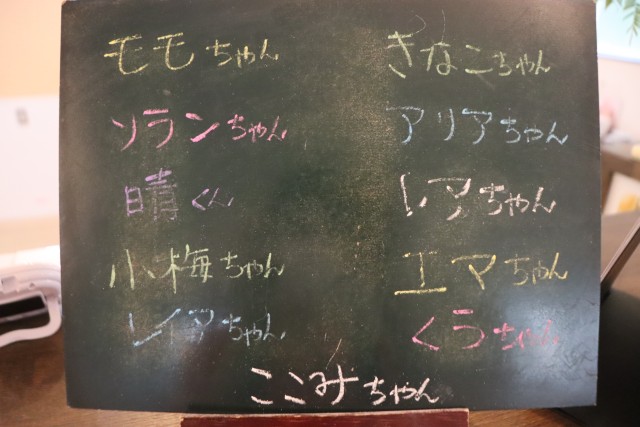 モモちゃん
ソランちゃん
晴くん
小梅ちゃん
レイアちゃん
きなこちゃん
アリアちゃん
レアちゃん
エマちゃん
くうちゃん
ここみちゃん